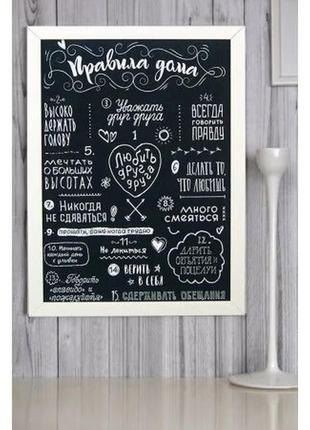 Правила дома
1
Любить
друг
друга
2.
Высоко
держать
голову
3
Уважать
друг друга
4.
Всегда
говорить
правду
5.
Мечтать
о больших
высотах
6
Делать то,
что любишь
7. Никогда
не сдаваться!
8.
Много
смеяться
9. Прощать, даже когда трудно
10. Начинать
каждый день
с улыбки
11
Не лениться
12.
Дарить
объятия и
поцелуи
13. Говорить
«спасибо» и
«пожалуйста»
14 Верить
в себя
15. Сдерживать обещания